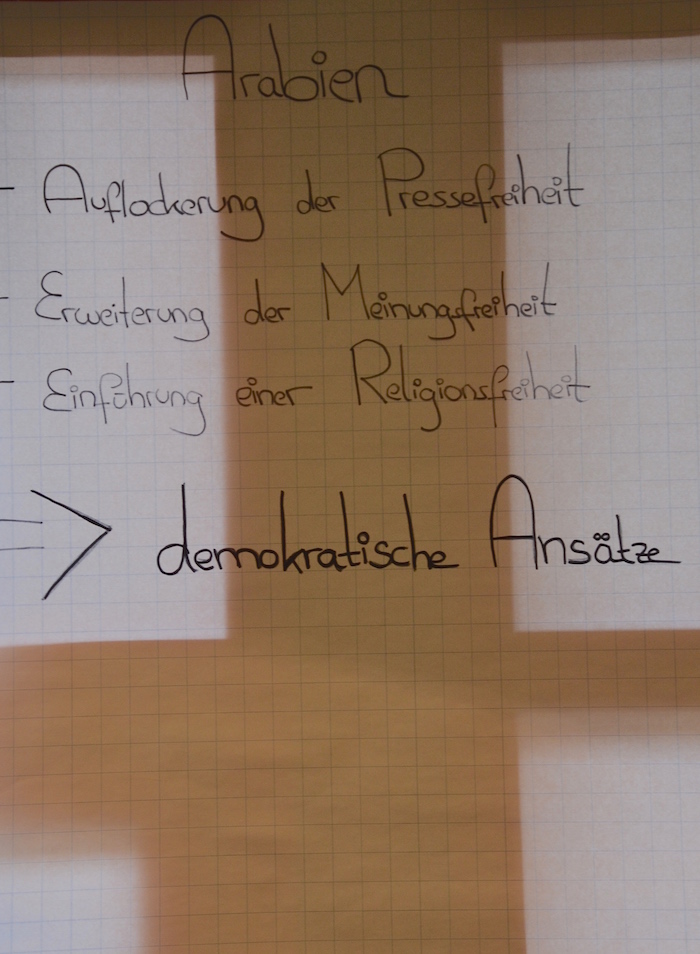 Arabien
- Auflockerung der Pressefreiheit
- Erweiterung der Meinungsfreiheit
- Einführung einer Religionsfreiheit
=> demokratische Ansätze